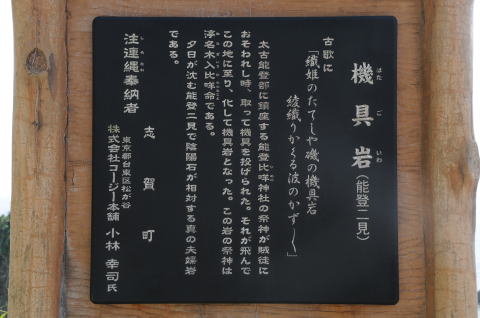 機具岩（能登二見）
はたごいわ
古歌に
「織姫のたてしや磯の機具岩
綾織りかくる波のかずかず」
太古能登郡に鎮座する能登比咩神社の祭神が賊徒に
おそわれし時、取って機具を投げられた。それが飛んで
この地に至り、化して機具岩となった。この岩の祭神は
渟名木入比咩命である。
夕日が沈む能登二見で陰陽石が相対する真の夫婦岩
である。
しめなわ
注連縄奉納者
志賀町
東京都台東区松が谷
株式会社コージー本舗 小林幸司氏